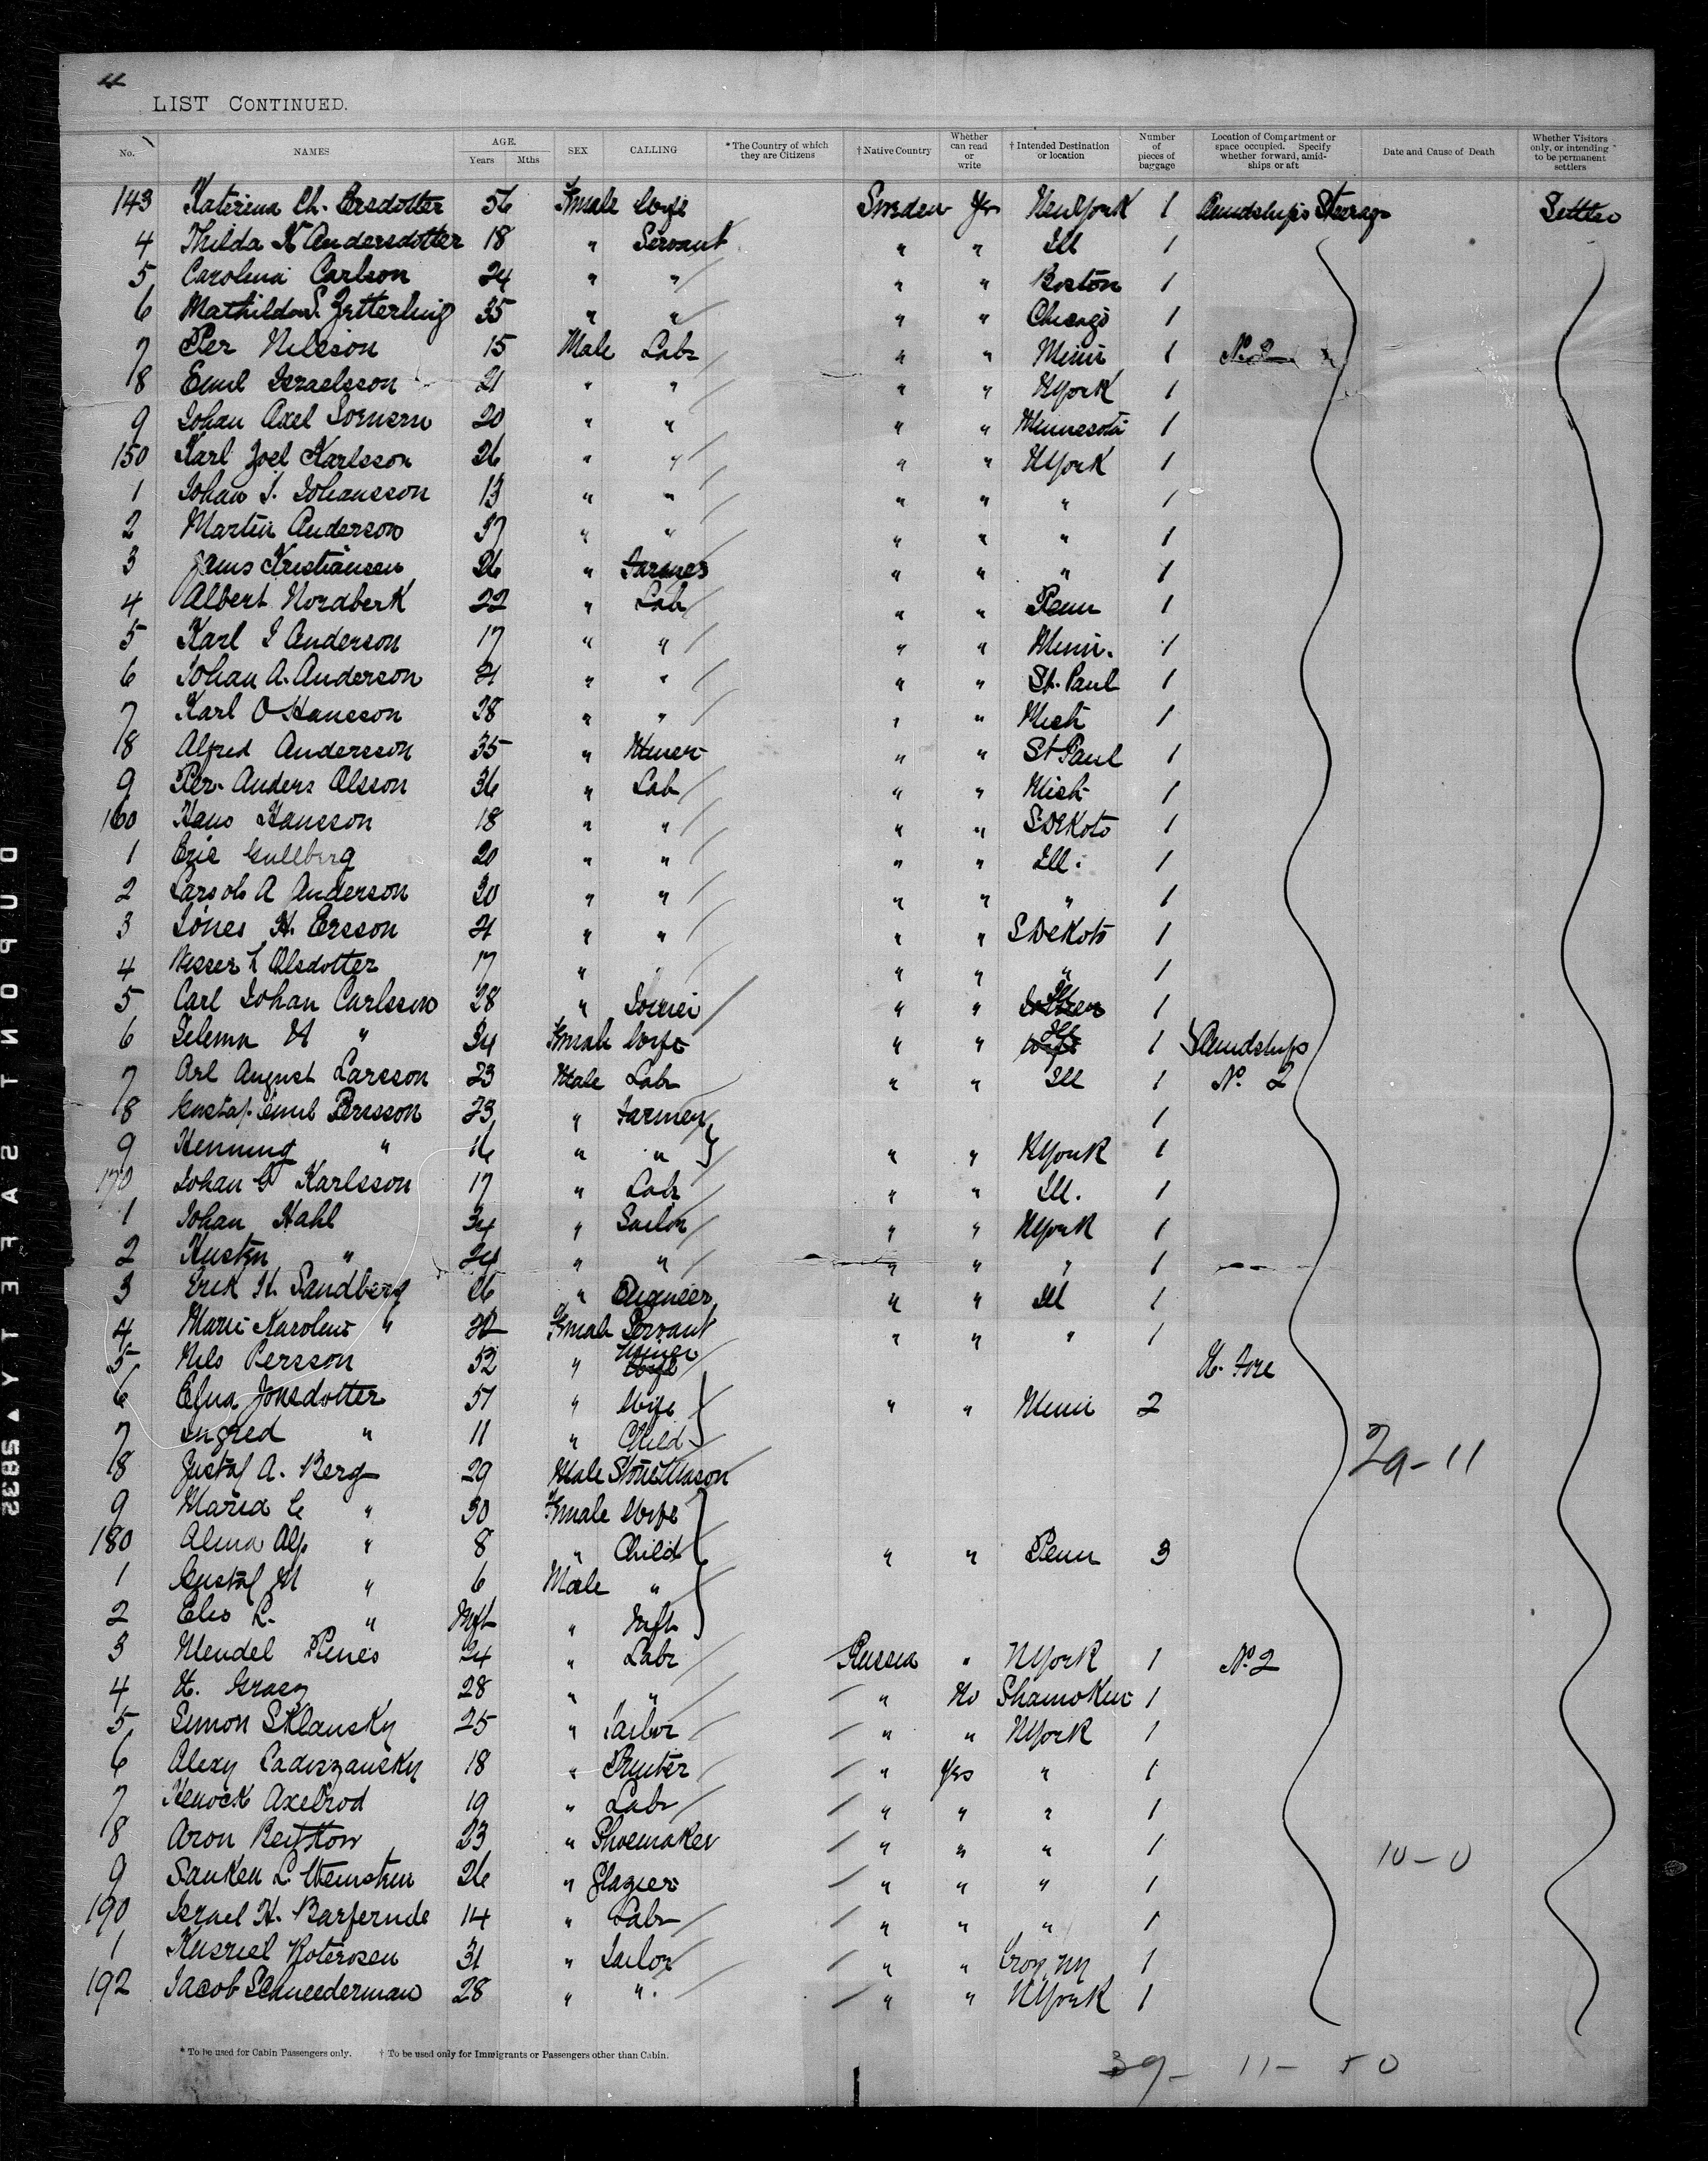 4
LIST CONTINUED.
No. NAMES AGE. Years Mths SEX CALLING * The Country of which they are Citizens † Native Country Whether can read or write † Intended Destination or location Number of pieces of baggage Location of Compartment or space occupied. Specify whether forward, amidships or aft Date and Cause of Death Whether Visitors only, or intending to be permanent settlers
143 Katerina Ch. Ersdotter 56 Female Wife Sweden Yes New York 1 Amidships Steerage Settler
4 Thilda K Andersdotter 18 " Servant " " Ill 1
5 Carolina Carlson 24 " " " " Boston 1
6 Mathilda S. Zetterling 35 " " " " Chicago 1
7 Per Nilsson 15 Male Labr " " Minn 1 No. 2
8 Emil Israelsson 21 " " " " NYork 1
9 Johan Axel 20 " " " " Minnesota 1
150 Karl Joel Karlsson 26 " " " " NYork 1
1 Johan J. Johansson 13 " " " " " 1
2 Martin Anderson 37 " " " " " 1
3 Kristiansen 26 " Farmer " " " 1
4 Albert Nordberk 22 " Lab " " Penn 1
5 Karl J Anderson 17 " " " " Minn. 1
6 Johan A. Anderson 21 " " " " St. Paul 1
7 Karl O Hansson 38 " " " " Mich 1
8 Alfred Andersson 35 " Miner " " St Paul 1
9 Per Anders Olsson 36 " Lab " " Mich 1
160 Hans Hansson 18 " " " " S Dekoto 1
1 Eric Gullberg 20 " " " " Ill. 1
2 Lars A Anderson 30 " " " " " 1
3 Jones H. Ersson 21 " " " " S Dekoto 1
4 L Olsdotter 17 " " " " " 1
5 Carl Johan Carlsson 28 " " " Ill 1
6 Selema M " 34 Female Wife " " Ill 1 Amidships
7 Arl August Larsson 23 Male Labr " " Ill 1 No. 2
8 Gustaf Emil Persson 23 " Farmer 1
9 Henning " 16 " " " " NYork 1
170 Johan G Karlsson 17 " Labr " " Ill. 1
1 Johan Hahl 34 " Sailor " " NYork 1
2 " 24 " " " " " 1
3 Erik H. Sandberg 26 " Engineer " " Ill 1
4 Marie Karolina " 20 Female Servant " " " 1
5 Nils Persson 52 " Miner
6 Elna Jonsdotter 51 " Wife " " Minn 2
7 Ingred " 11 " Child
8 Gustaf A. Berg 29 Male Stone Mason 29-11
9 Maria C " 30 Female Wife
180 Alma Alf. " 8 " Child " " Penn 3
1 Gustaf M " 6 Male "
2 L. " Inft " Inft
3 Mendel Pines 24 " Labr Russia " NYork 1 No. 2
4 H. 28 " " " No Shamokin 1
5 Simon Sklansky 25 " Tailor " " NYork 1
6 Alexy 18 " Printer " Yes " 1
7 Henock Axelrod 19 " Labr " " " 1
8 Aron 23 " Shoemaker " " " 1 10-0
9 L. Weinstein 26 " Glazier " " " 1
190 Israel H. 14 " Labr " " " 1
1 Roterosen 31 " Tailor " " Troy, NY 1
192 Jacob Schneederman 28 " " " " NYork 1
* To be used for Cabin Passengers only. † To be used only for Immigrants or Passengers other than Cabin.
39- 11-
DUPONT SAFETY 5832